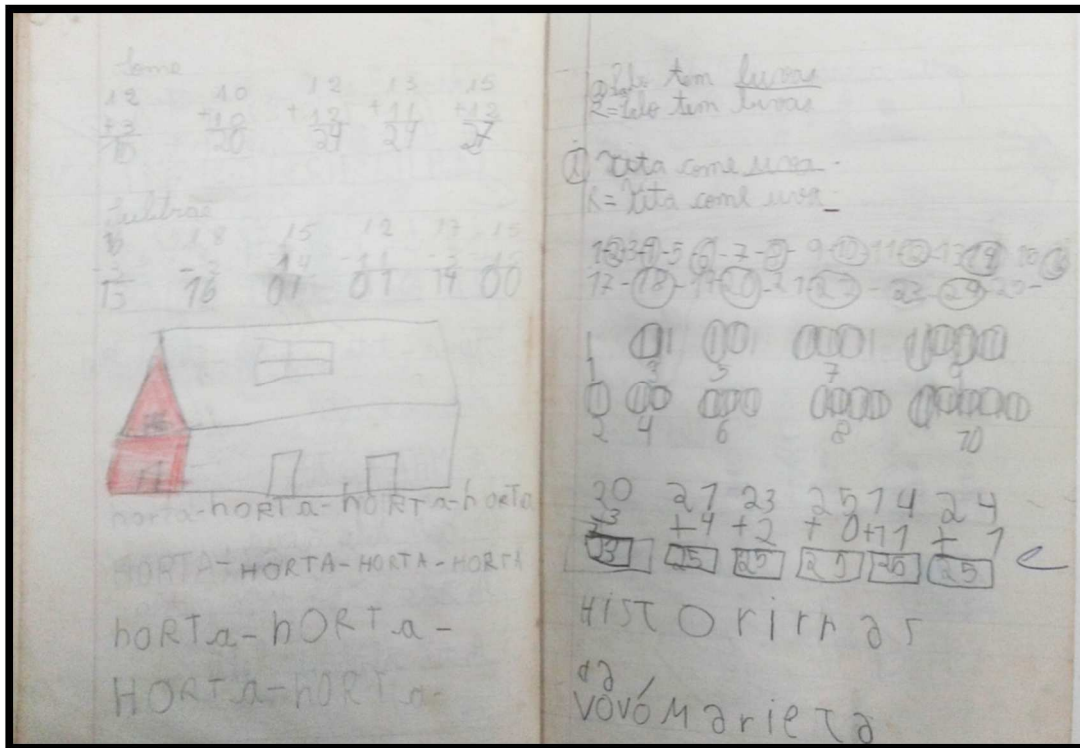 Some
12 10 12 13 15
+3 +10 +12 +11 +12
15 20 24 24 27
Subtrae
18 15 12 17 15
-3 -2 -14 -11 -3
13 16 01 01 14 00
horta-hORTA-hORTA-hORTA
HORTA-HORTA-HORTA-HORTA
hoRTa-hORTa-
HORTa-hORTa-
Lalo tem luvas
R=Lalo tem luvas
Xita come uva.
R= Xita come uva
1-2-3-4-5-6-7-8-9-10-11-12-13-14 15 16
17-18-19-20-21-22-23-24-25-
1 3 5 7 9
2 4 6 8 10
20 21 23 25 14 24
+3 +4 +2 +0 +11 +1
23 25 25 25 25 25
HISTOrinhas
da
VOVÓ Marieta